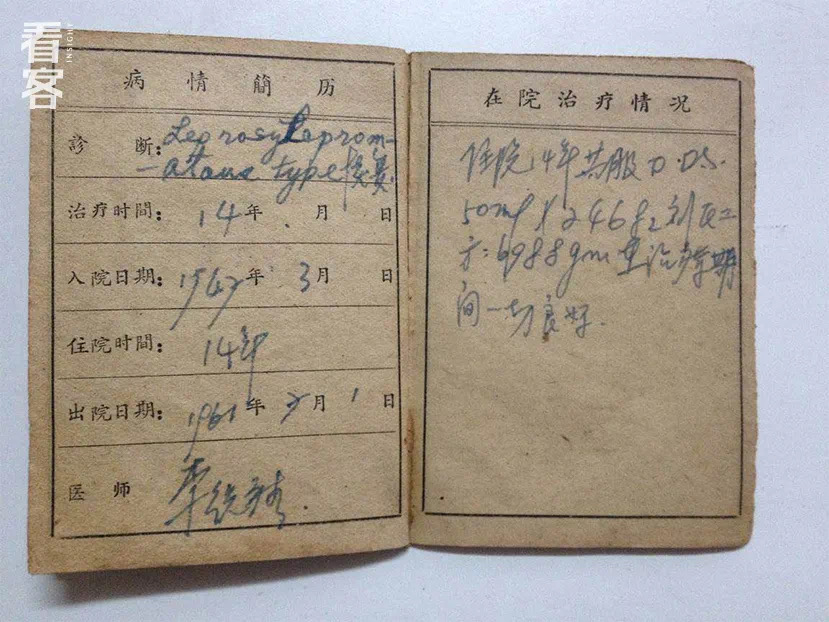 看客
INSIGHT
病情簡历
診断: Leprosy Leprom-
-atous type
治疗时間: 14年 月 日
入院日期: 1947年 3月 日
住院时間: 14年
出院日期: 1961年 2月 1日
医师
在院治疗情况
住院14年共服D.D.S.
50mg
方: 6988gm 在治疗期
间一切良好.